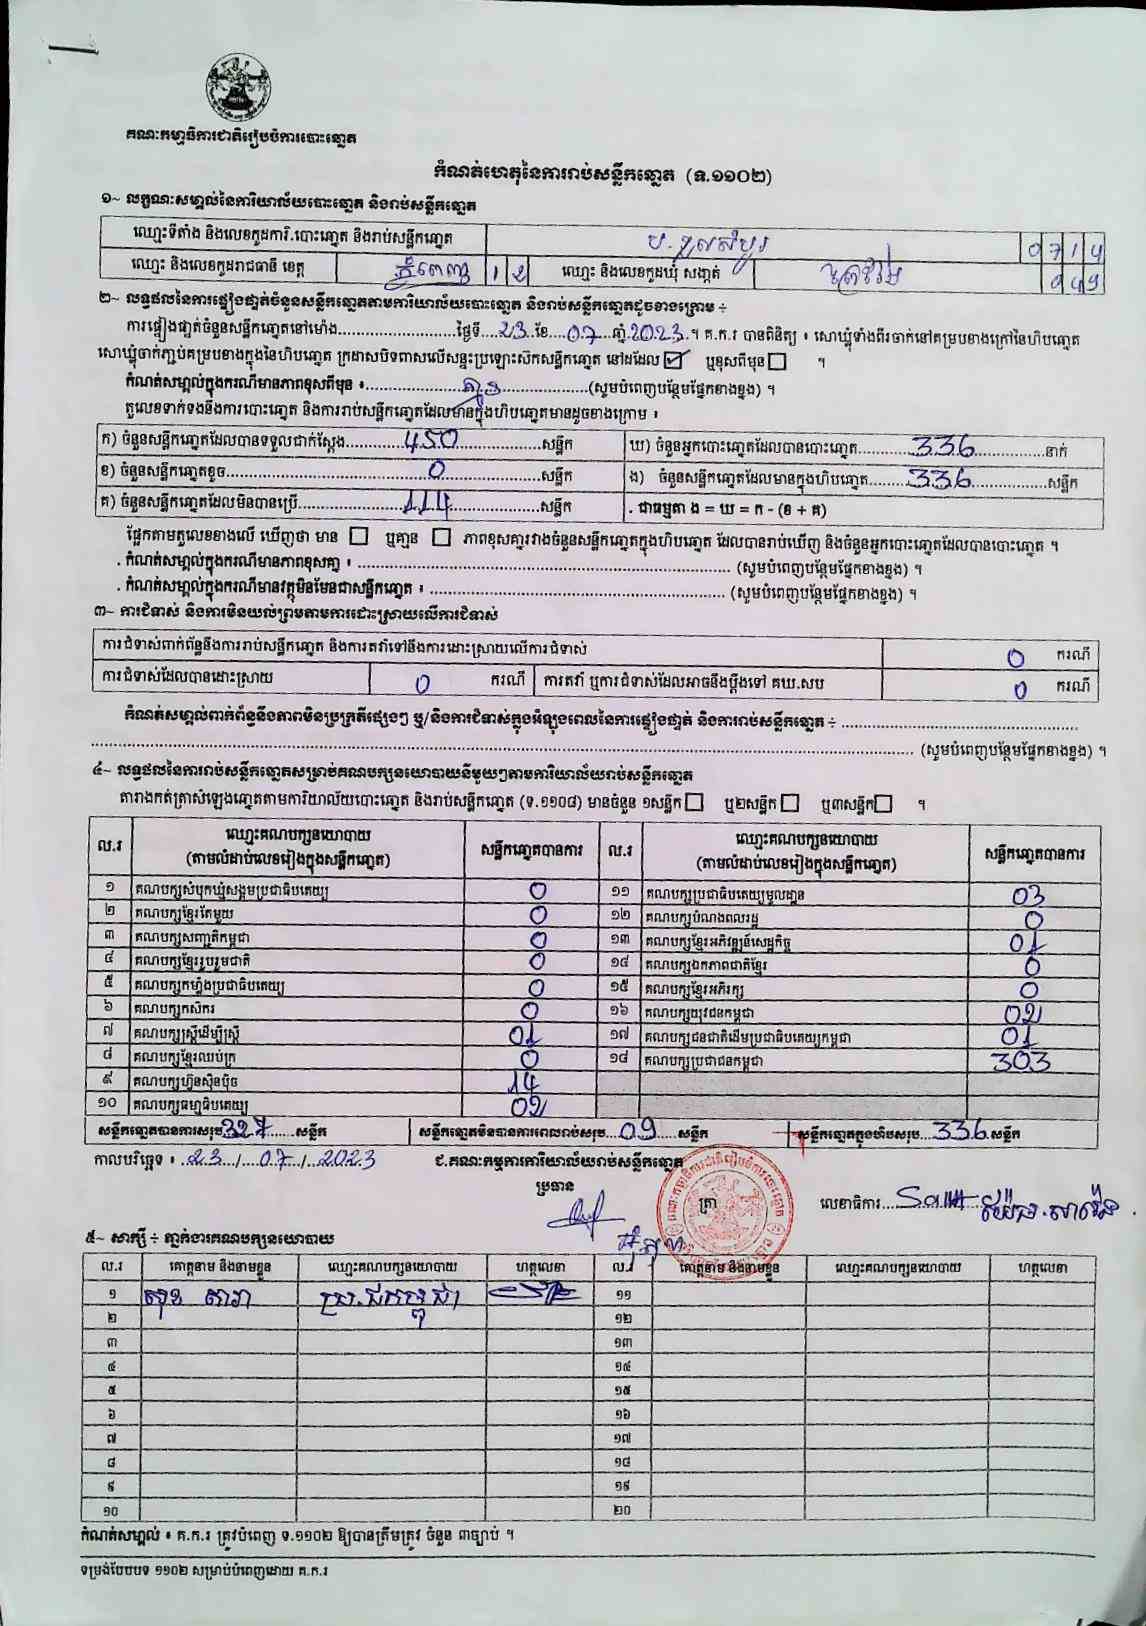 គណៈកម្មាធិការជាតិរៀបចំការបោះឆ្នោត
កំណត់ហេតុនៃការរាប់សន្លឹកឆ្នោត (ទ.១១០២)
១~ លក្ខណៈសម្គាល់នៃការិយាល័យបោះឆ្នោត និងរាប់សន្លឹកឆ្នោត
ឈ្មោះទីតាំង និងលេខកូដការិ.បោះឆ្នោត និងរាប់សន្លឹកឆ្នោត 0714
ឈ្មោះ និងលេខកូដរាជធានី ខេត្ត ភ្នំពេញ 12 ឈ្មោះ និងលេខកូដឃុំ សង្កាត់
២~ លទ្ធផលនៃការផ្ទៀងផ្ទាត់ចំនួនសន្លឹកឆ្នោតតាមការិយាល័យបោះឆ្នោត និងរាប់សន្លឹកឆ្នោតដូចខាងក្រោម ÷
ការផ្ទៀងផ្ទាត់ចំនួនសន្លឹកឆ្នោតនៅម៉ោង..........ថ្ងៃទី..23..ខែ..07..ឆ្នាំ.2023.។ គ.ក.រ បានពិនិត្យ ៖ សោឃ្នុំទាំងពីរចាក់នៅគម្របខាងក្រៅនៃហិបឆ្នោត
សោឃ្នុំចាក់ភ្ជាប់គម្របខាងក្នុងនៃហិបឆ្នោត ក្រដាសបិទពាសលើសន្ទះប្រឡោះស៊កសន្លឹកឆ្នោត នៅដដែល ☑ ឬខុសពីមុន ☐ ។
កំណត់សម្គាល់ក្នុងករណីមានភាពខុសពីមុន ៖.......គ្មាន.......(សូមបំពេញបន្ថែមផ្នែកខាងខ្នង) ។
តួលេខទាក់ទងនឹងការបោះឆ្នោត និងការរាប់សន្លឹកឆ្នោតដែលមានក្នុងហិបឆ្នោតមានដូចខាងក្រោម ៖
ក) ចំនួនសន្លឹកឆ្នោតដែលបានទទួលជាក់ស្តែង.......450.......សន្លឹក ឃ) ចំនួនអ្នកបោះឆ្នោតដែលបានបោះឆ្នោត.......336.......នាក់
ខ) ចំនួនសន្លឹកឆ្នោតខូច.......0.......សន្លឹក ង) ចំនួនសន្លឹកឆ្នោតដែលមានក្នុងហិបឆ្នោត.......336.......សន្លឹក
គ) ចំនួនសន្លឹកឆ្នោតដែលមិនបានប្រើ.......114.......សន្លឹក . ជាធម្មតា ង = ឃ = ក - (ខ + គ)
ផ្អែកតាមតួលេខខាងលើ ឃើញថា មាន ☐ ឬគ្មាន ☐ ភាពខុសគ្នារវាងចំនួនសន្លឹកឆ្នោតក្នុងហិបឆ្នោត ដែលបានរាប់ឃើញ និងចំនួនអ្នកបោះឆ្នោតដែលបានបោះឆ្នោត ។
. កំណត់សម្គាល់ក្នុងករណីមានភាពខុសគ្នា ៖ .............. (សូមបំពេញបន្ថែមផ្នែកខាងខ្នង) ។
. កំណត់សម្គាល់ក្នុងករណីមានវត្ថុមិនមែនជាសន្លឹកឆ្នោត ៖ .............. (សូមបំពេញបន្ថែមផ្នែកខាងខ្នង) ។
៣~ ការជំទាស់ និងការមិនយល់ព្រមតាមការដោះស្រាយលើការជំទាស់
ការជំទាស់ពាក់ព័ន្ធនឹងការរាប់សន្លឹកឆ្នោត និងការតវ៉ាទៅនឹងការដោះស្រាយលើការជំទាស់ 0 ករណី
ការជំទាស់ដែលបានដោះស្រាយ 0 ករណី ការតវ៉ា ឬការជំទាស់ដែលអាចនឹងប្តឹងទៅ គឃ.សប 0 ករណី
កំណត់សម្គាល់ពាក់ព័ន្ធនឹងភាពមិនប្រក្រតីផ្សេងៗ ឬ/និងការជំទាស់ក្នុងអំឡុងពេលនៃការផ្ទៀងផ្ទាត់ និងការរាប់សន្លឹកឆ្នោត ÷ ..............
.............. (សូមបំពេញបន្ថែមផ្នែកខាងខ្នង) ។
៤~ លទ្ធផលនៃការរាប់សន្លឹកឆ្នោតសម្រាប់គណបក្សនយោបាយនីមួយៗតាមការិយាល័យរាប់សន្លឹកឆ្នោត
តារាងកត់ត្រាសំឡេងឆ្នោតតាមការិយាល័យបោះឆ្នោត និងរាប់សន្លឹកឆ្នោត (ទ.១១០៨) មានចំនួន ១សន្លឹក ☐ ឬ២សន្លឹក ☐ ឬ៣សន្លឹក ☐ ។
ល.រ ឈ្មោះគណបក្សនយោបាយ (តាមលំដាប់លេខរៀងក្នុងសន្លឹកឆ្នោត) សន្លឹកឆ្នោតបានការ ល.រ ឈ្មោះគណបក្សនយោបាយ (តាមលំដាប់លេខរៀងក្នុងសន្លឹកឆ្នោត) សន្លឹកឆ្នោតបានការ
១ គណបក្សសំបុកឃ្មុំសង្គមប្រជាធិបតេយ្យ 0 ១១ គណបក្សប្រជាធិបតេយ្យមូលដ្ឋាន 03
២ គណបក្សខ្មែរតែមួយ 0 ១២ គណបក្សបំណងពលរដ្ឋ 0
៣ គណបក្សសញ្ជាតិកម្ពុជា 0 ១៣ គណបក្សខ្មែរអភិវឌ្ឍន៍សេដ្ឋកិច្ច 01
៤ គណបក្សខ្មែររួបរួមជាតិ 0 ១៤ គណបក្សឯកភាពជាតិខ្មែរ 0
៥ គណបក្សកម្លាំងប្រជាធិបតេយ្យ 0 ១៥ គណបក្សខ្មែរអភិរក្ស 0
៦ គណបក្សកសិករ 0 ១៦ គណបក្សយុវជនកម្ពុជា 02
៧ គណបក្សស្ត្រីដើម្បីស្ត្រី 01 ១៧ គណបក្សជនជាតិដើមប្រជាធិបតេយ្យកម្ពុជា 01
៨ គណបក្សខ្មែរឈប់ក្រ 0 ១៨ គណបក្សប្រជាជនកម្ពុជា 303
៩ គណបក្សហ្វ៊ុនស៊ិនប៉ិច 14
១០ គណបក្សធម្មាធិបតេយ្យ 02
សន្លឹកឆ្នោតបានការសរុប 327 ......សន្លឹក សន្លឹកឆ្នោតមិនបានការពេលរាប់សរុប...09.....សន្លឹក សន្លឹកឆ្នោតក្នុងហិបសរុប...336.សន្លឹក
កាលបរិច្ឆេទ ៖ .23../..07../..2023 ជ.គណៈកម្មការការិយាល័យរាប់សន្លឹកឆ្នោត
ប្រធាន ត្រា លេខាធិការ
៥~ សាក្សី ÷ ភ្នាក់ងារគណបក្សនយោបាយ
ល.រ គោត្តនាម និងនាមខ្លួន ឈ្មោះគណបក្សនយោបាយ ហត្ថលេខា ល.រ គោត្តនាម និងនាមខ្លួន ឈ្មោះគណបក្សនយោបាយ ហត្ថលេខា
១ សុខ តារា ប្រ.ជ.កម្ពុជា ១១
២ ១២
៣ ១៣
៤ ១៤
៥ ១៥
៦ ១៦
៧ ១៧
៨ ១៨
៩ ១៩
១០ ២០
កំណត់សម្គាល់ ៖ គ.ក.រ ត្រូវបំពេញ ទ.១១០២ ឱ្យបានត្រឹមត្រូវ ចំនួន ៣ច្បាប់ ។
ទម្រង់បែបបទ ១១០២ សម្រាប់បំពេញដោយ គ.ក.រ